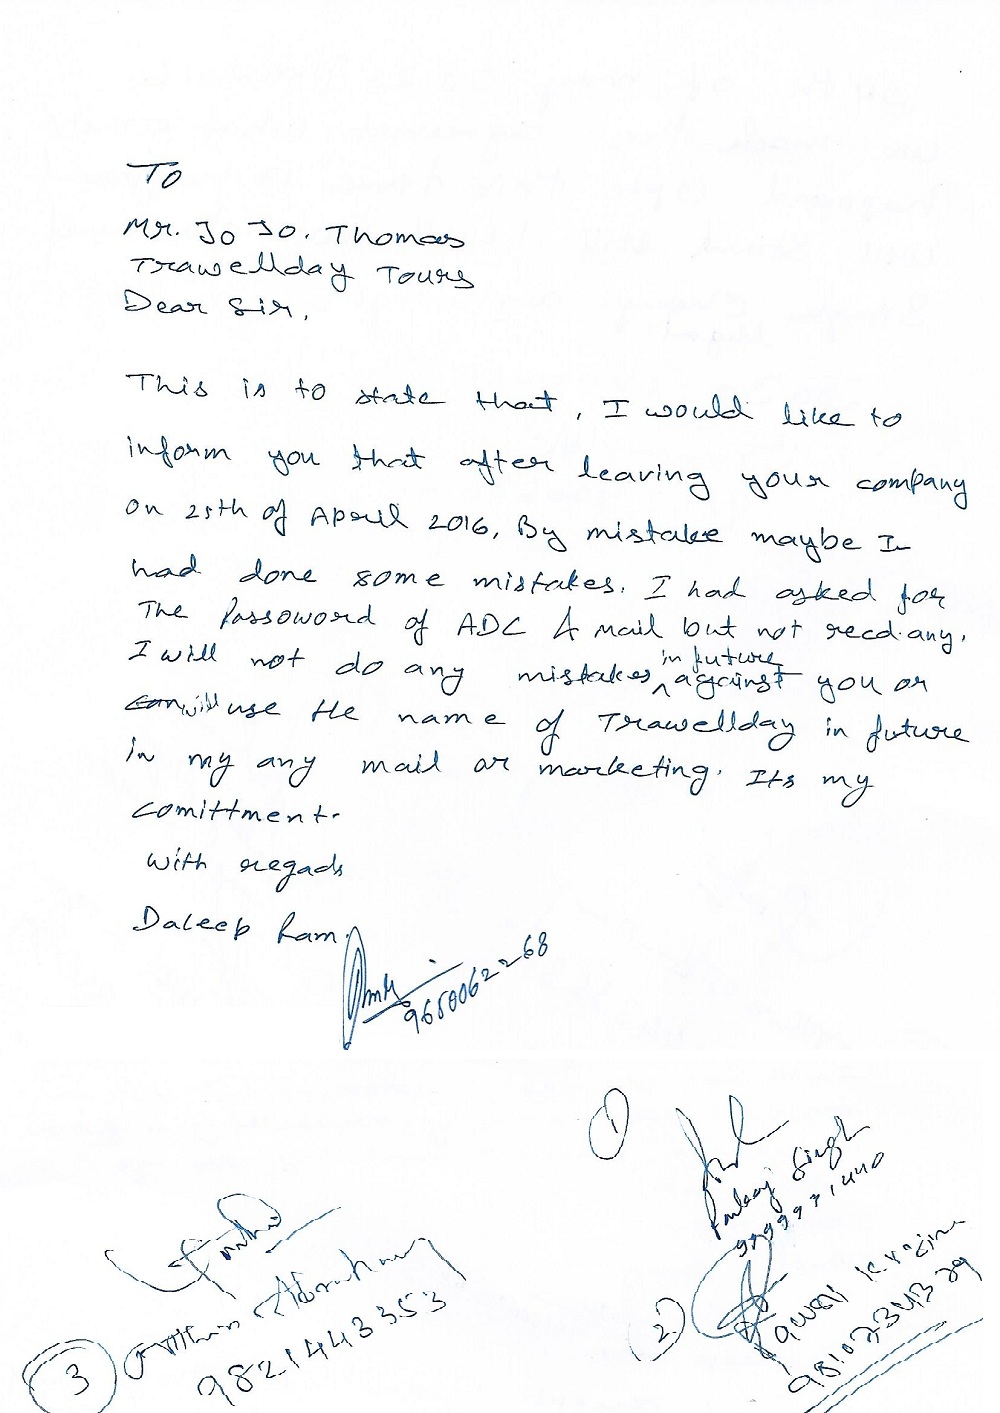 To
Mr. Jo Jo. Thomas
Trawellday Tours
Dear Sir,
This is to state that, I would like to
inform you that after leaving your company
on 25th of April 2016, By mistake maybe I
had done some mistakes. I had asked for
The Passoword of ADC A mail but not recd. any.
I will not do any mistakes in future against you or
will use the name of Trawellday in future
in my any mail or marketing. Its my
comittment.
with regads
Daleep Ram.
9650062268
1
Pankaj Singh
9999931440
2)
9810234379
3
Abraham
9821443353